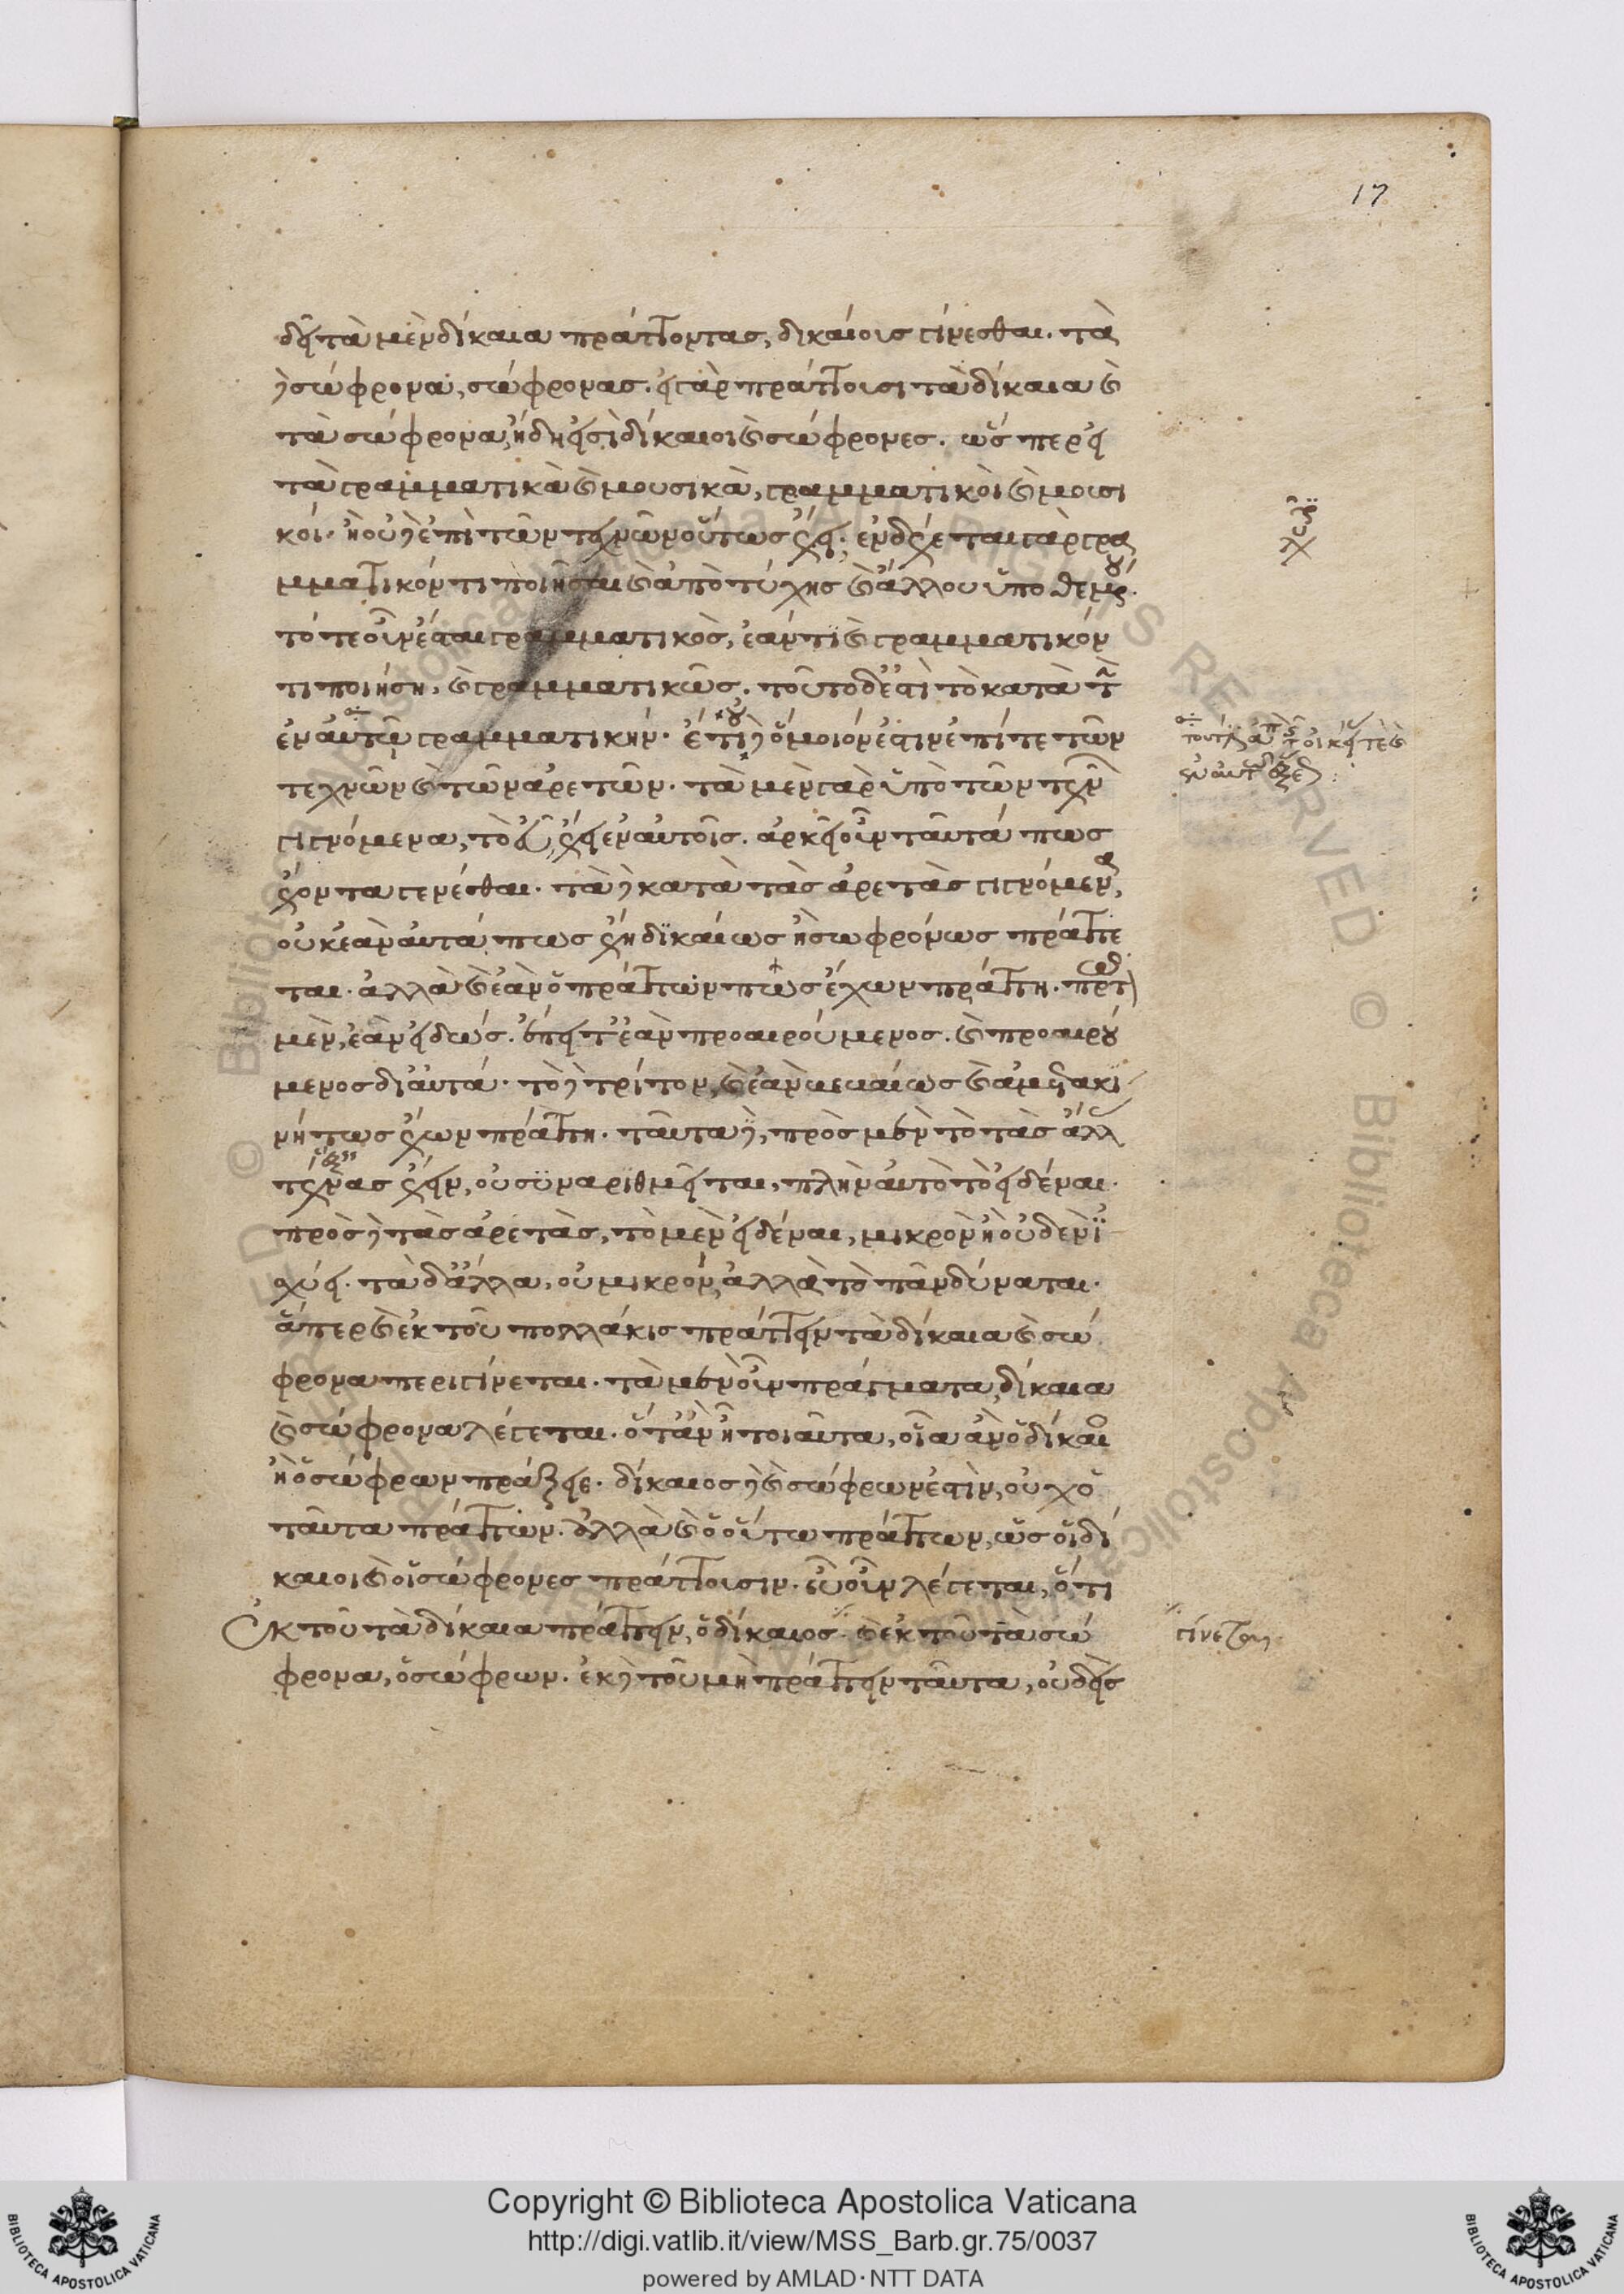 17
δεῖ τὰ μὲν δίκαια πράττοντας, δικαίους γίνεσθαι. τὰ
δὲ σώφρονα, σώφρονας. εἰ γὰρ πράττουσι τὰ δίκαια καὶ
τὰ σώφρονα, ἤδη εἰσὶ δίκαιοι καὶ σώφρονες. ὥσπερ εἰ
τὰ γραμματικὰ καὶ μουσικὰ, γραμματικοὶ καὶ μουσι
κοί. ἢ οὐδὲ ἐπὶ τῶν τεχνῶν οὕτως ἔχει. ἐνδέχεται γὰρ γρα
μματικόν τι ποιῆσαι καὶ ἀπὸ τύχης καὶ ἄλλου ὑποθεμένου.
τότε οὖν ἔσται γραμματικὸς, ἐάν τι καὶ γραμματικόν
τι ποιήσῃ, καὶ γραμματικῶς. τοῦτο δέ ἐστι τὸ κατὰ τὴν
ἐν αὑτῷ γραμματικήν. ἔτι δὲ ὅμοιόν ἐστιν ἐπί τε τῶν
τεχνῶν καὶ τῶν ἀρετῶν. τὰ μὲν γὰρ ὑπὸ τῶν τεχνῶν
γιγνόμενα, τὸ εὖ ἔχει ἐν αὑτοῖς. ἀρκεῖ οὖν ταῦτά πως
ἔχοντα γενέσθαι. τὰ δὲ κατὰ τὰς ἀρετὰς γιγνόμενα,
οὐκ ἐὰν αὐτά πως ἔχῃ δικαίως ἢ σωφρόνως πράττε
ται. ἀλλὰ καὶ ἐὰν ὁ πράττων πῶς ἔχων πράττῃ. πρῶτον
μὲν, ἐὰν εἰδώς. ἔπειτ' ἐὰν προαιρούμενος. καὶ προαιρού
μενος δι' αὐτά. τὸ δὲ τρίτον, καὶ ἐὰν βεβαίως καὶ ἀμετακι
νήτως ἔχων πράττῃ. ταῦτα δὲ, πρὸς μὲν τὸ τὰς ἄλλας
τέχνας ἔχειν, οὐ συναριθμεῖται, πλὴν αὐτὸ τὸ εἰδέναι.
πρὸς δὲ τὰς ἀρετὰς, τὸ μὲν εἰδέναι, μικρὸν ἢ οὐδὲν ἰ
σχύει. τὰ δ' ἄλλα, οὐ μικρόν, ἀλλὰ τὸ πᾶν δύναται.
ἅπερ καὶ ἐκ τοῦ πολλάκις πράττειν τὰ δίκαια καὶ σώ
φρονα περιγίνεται. τὰ μὲν οὖν πράγματα, δίκαια
καὶ σώφρονα λέγεται. ὅταν ᾖ τοιαῦτα, οἷα ἂν ὁ δίκαιος
ἢ ὁ σώφρων πράξειε. δίκαιος δὲ καὶ σώφρων ἐστὶν, οὐχ ὁ
ταῦτα πράττων. ἀλλὰ καὶ ὁ οὕτω πράττων, ὡς οἱ δί
καιοι καὶ οἱ σώφρονες πράττουσιν. εὖ οὖν λέγεται, ὅτι
ἐκ τοῦ τὰ δίκαια πράττειν, ὁ δίκαιος. καὶ ἐκ τοῦ τὰ σώ
φρονα, ὁ σώφρων. ἐκ δὲ τοῦ μὴ πράττειν ταῦτα, οὐδεὶς
γίνεται
Copyright © Biblioteca Apostolica Vaticana
http://digi.vatlib.it/view/MSS_Barb.gr.75/0037
powered by AMLAD · NTT DATA
BIBLIOTECA APOSTOLICA VATICANA
BIBLIOTECA APOSTOLICA VATICANA